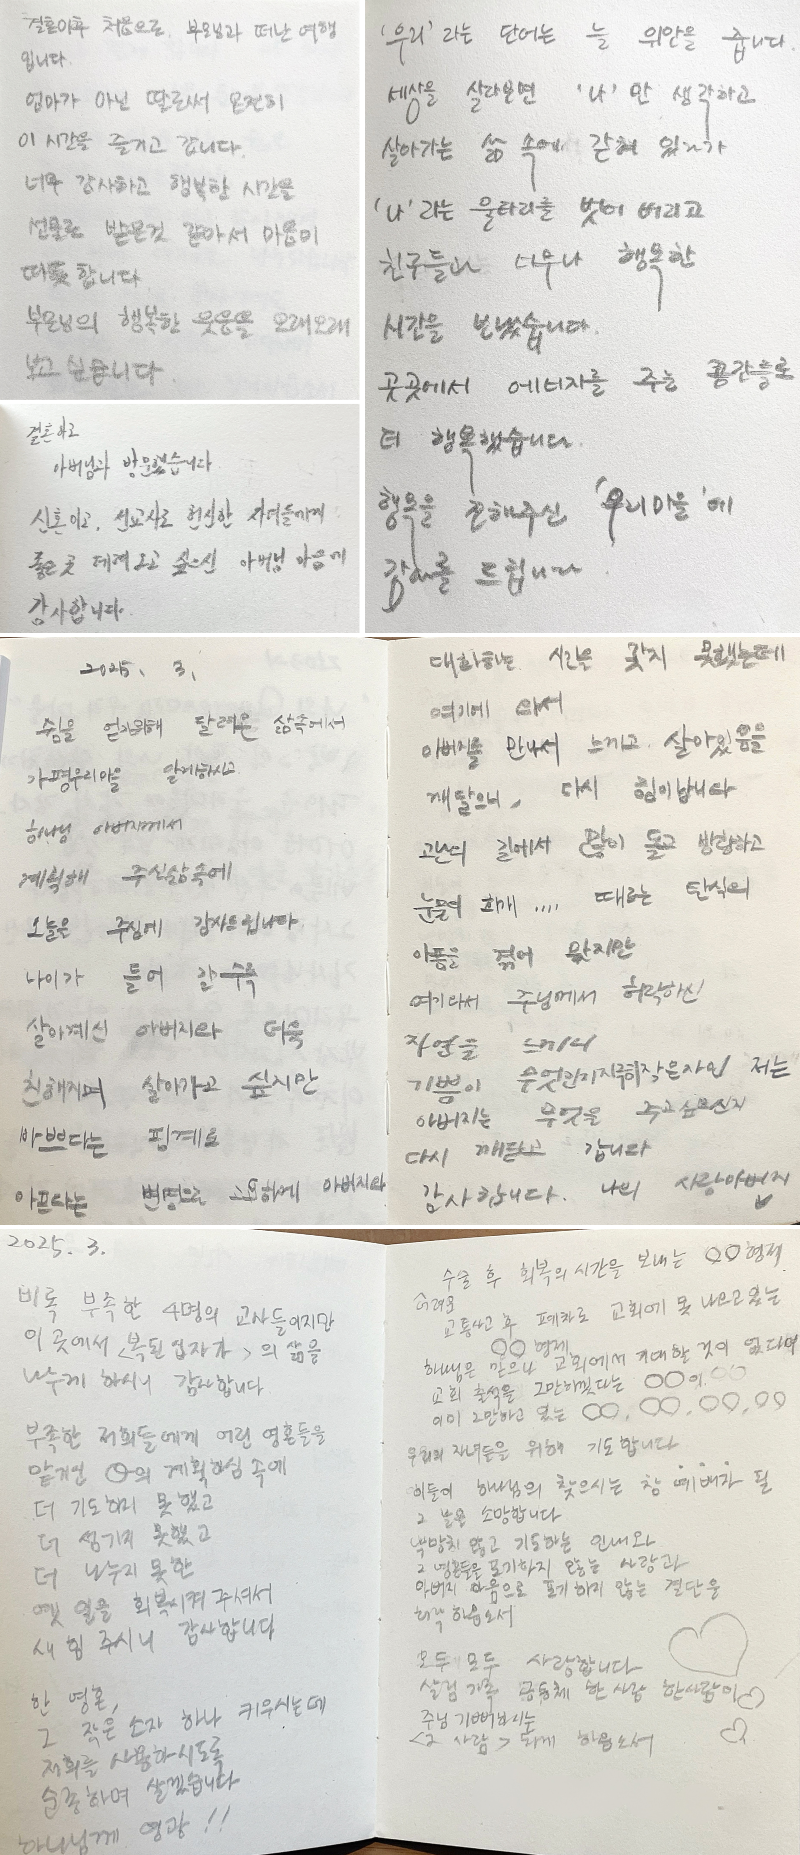 결혼이후 처음으로, 부모님과 떠난 여행
입니다.
엄마가 아닌 딸로써 온전히
이 시간을 즐기고 갑니다.
너무 감사하고 행복한 시간을
선물로 받은것 같아서 마음이
따뜻합니다.
부모님의 행복한 웃음을 오래오래
보고 싶습니다
결혼하고
아버님과 방문했습니다
신혼이고, 선교사로 헌신한 자녀들에게
좋은 곳 데려오고 싶으신 아버님 마음에
감사합니다.
'우리'라는 단어는 늘 위안을 줍니다.
세상을 살다보면 '나'만 생각하고
살아가는 삶 속에 갇혀 있다가
'나'라는 울타리를 벗어 버리고
친구들과 너무나 행복한
시간을 보냈습니다.
곳곳에서 에너지를 주는 공간들로
더 행복했습니다.
행복을 전해주신 '우리마을'에
감사를 드립니다
2025. 3.
쉼을 얻기위해 달려온 삶속에서
가평우리마을 알게하시고
하나님 아버지께서
계획해 주신삶속에
오늘은 주심에 감사드립니다
나이가 들어 갈수록
살아계신 아버지와 더욱
친해지며 살아가고 싶지만
바쁘다는 핑계로
아프다는 변명으로 고요하게 아버지와
대화하는 시간을 갖지 못했는데
여기에 와서
아버지를 만나서 느끼고, 살아있음을
깨달으니, 다시 힘이납니다
고난의 길에서 많이 돌고 방황하고
눈물의 회개 .... 때로는 탄식의
아픔을 겪어 왔지만
여기와서 주님께서 허락하신
자연을 느끼니
기쁨이 무엇인지 작은자인 저는
아버지는 무엇을 주고싶으신지
다시 깨닫고 갑니다
감사합니다. 나의 사랑아버지
2025. 3.
비록 부족한 4명의 교사들이지만
이 곳에서 <복된 십자가>의 삶을
나누게 하시니 감사합니다
부족한 저희들에게 어린 영혼들을
맡기신 ○의 계획하심 속에
더 기도하지 못했고
더 섬기지 못했고
더 나누지 못한
옛 일을 회복시켜 주셔서
새 힘 주시니 감사합니다
한 영혼,
그 작은 소자 하나 키우시는데
저희를 사용하시도록
순종하며 살겠습니다
하나님께 영광 !!
수술 후 회복의 시간을 보내는 ○○형제
어려운
교통사고 후 폐차로 교회에 못 나오고 있는
○○형제
하나님은 믿으나 교회에서 기대할 것이 없다며
교회 출석을 그만하겠다는 ○○이
이미 그만하고 있는 ○○, ○○, ○○, ○○
우리의 자녀들을 위해 기도합니다
이들이 하나님의 찾으시는 참 예배자 될
그 날을 소망합니다
낙망치 않고 기도하는 인내와
그 영혼들을 포기하지 않는 사랑과
아버지 마음으로 포기하지 않는 결단을
허락 하옵소서
모두 모두 사랑합니다
살림 가족 공동체 한사람 한사람이
주님 기뻐하시는
<그 사람> 되게 하옵소서